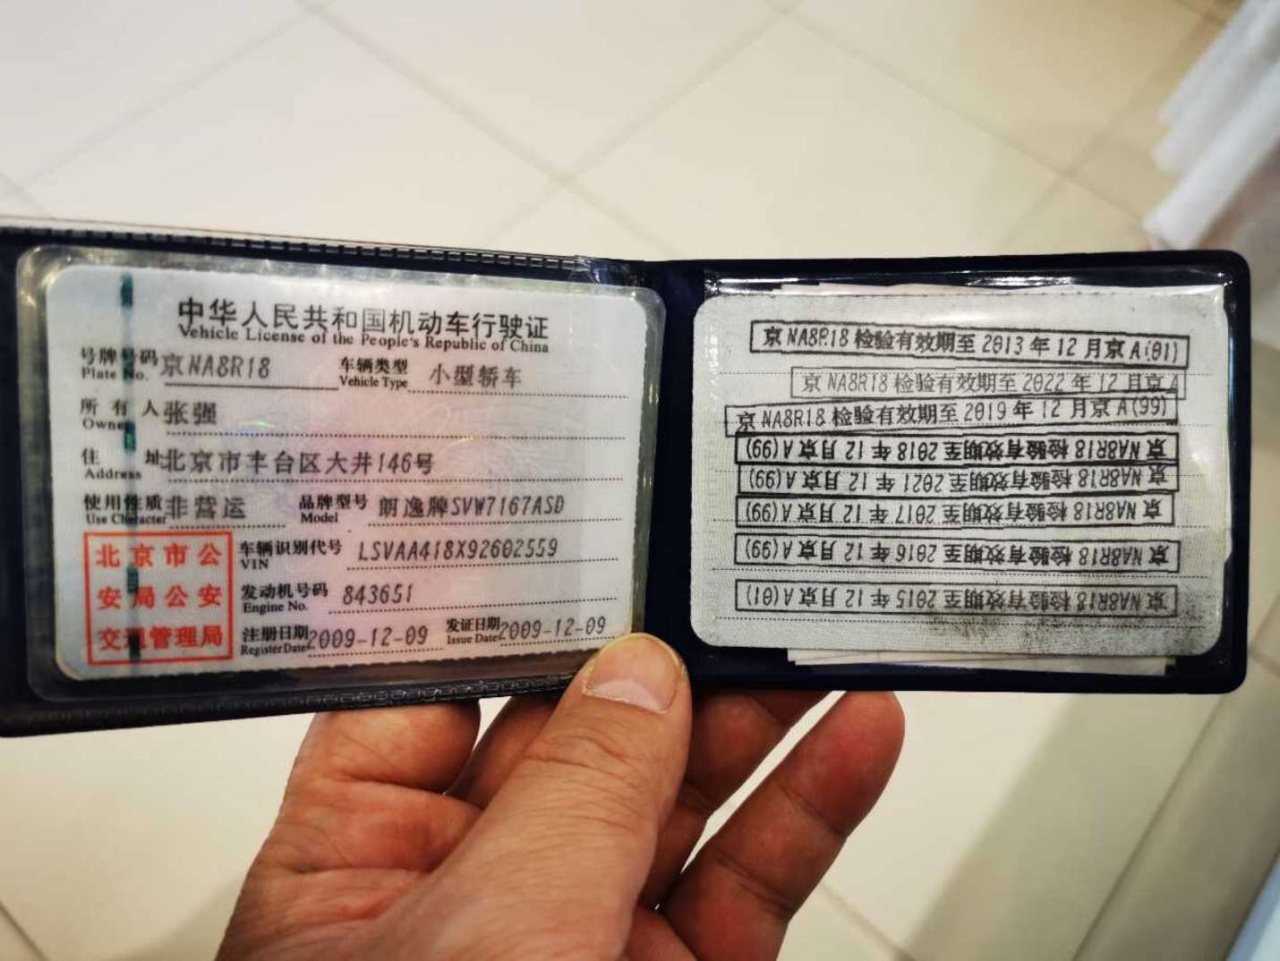 中华人民共和国机动车行驶证
Vehicle License of the People's Republic of China
号牌号码 京NA8R18 车辆类型 小型轿车
Plate No. Vehicle Type
所有人 张强
Owner
住址 北京市丰台区大井146号
Address
使用性质 非营运 品牌型号 朗逸牌SVW7167ASD
Use Character Model
北京市公安局公安交通管理局
车辆识别代号 LSVAA418X92602559
VIN
发动机号码 843651
Engine No.
注册日期 2009-12-09 发证日期 2009-12-09
Register Date Issue Date
京NA8R18 检验有效期至 2013年12月京A(01)
京NA8R18 检验有效期至 2022年12月京A
京NA8R18 检验有效期至 2019年12月京A(99)
京NA8R18 检验有效期至 2018年12月京A(99)
京NA8R18 检验有效期至 2021年12月京A(99)
京NA8R18 检验有效期至 2017年12月京A(99)
京NA8R18 检验有效期至 2016年12月京A(99)
京NA8R18 检验有效期至 2015年12月京A(01)